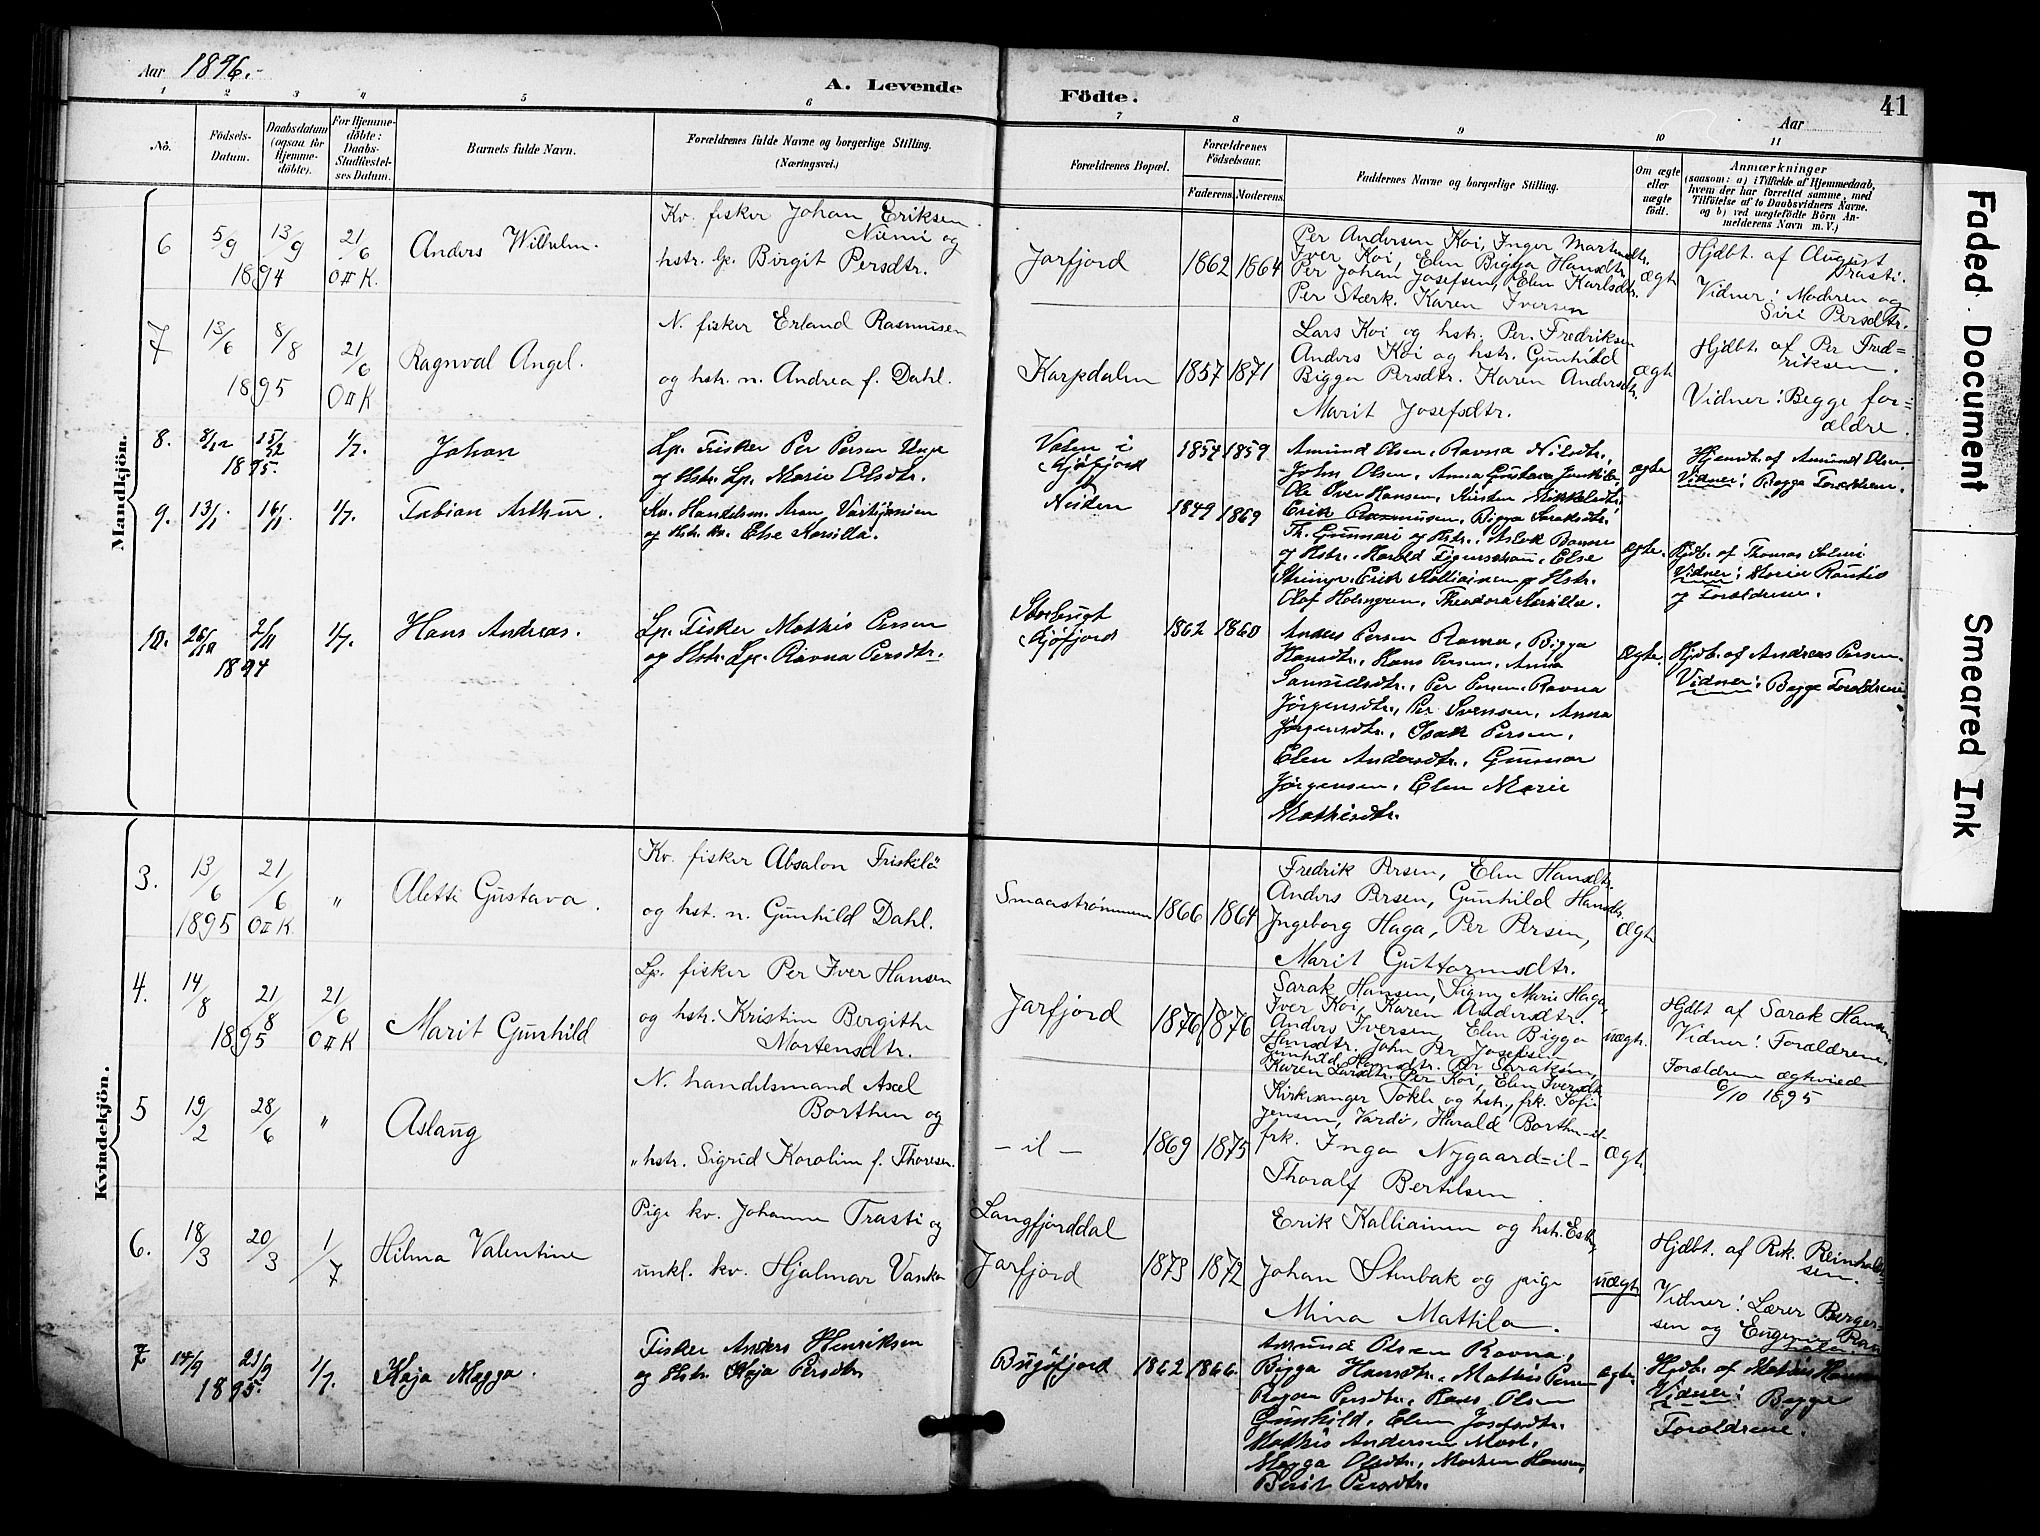 Aar 1896.-
A. Levende
Födte.
Aar
41
1 2 3 4 5 6 7 8 9 10 11
No.
Födsels-Datum.
Daabsdatum (ogsaa for Hjemme-döbte).
For Hjemme-döbte: Daabs-Stadfæstel-ses Datum.
Barnets fulde Navn.
Forældrenes fulde Navne og borgerlige Stilling. (Næringsvei.)
Forældrenes Bopæl.
Forældrenes Födselsaar.
Faderens. Moderens.
Faddernes Navne og borgerlige Stilling.
Om ægte eller uægte födt.
Anmærkninger
(saasom: a) i Tilfælde af Hjemmedaab,
hvem der har forrettet samme, med
Tilföielse af to Daabsvidners Navne.
og b) ved uegtefödte Börn An-
melderens Navn m. V.)
Mandkjön.
6 5/9 13/9 1894 21/6 O#K.
Anders Wilhelm.
Kv. fisker Johan Eriksen
Niemi og
hstr. lp. Birgit Persdtr.
Jarfjord 1862 1864
Per Andersen Koi, Inger
Iver Koi, Elen Bigga Hansdtr.
Per Johan Josefsen, Elen Karlsdtr.
Per Stærk. Karen Iversen
ægt
Hjdbt. af August
Trasti.
Vidner: Moderen og
Siri Persdtr.
7 13/6 8/8 1895 21/6 O#K
Ragnval Angel.
N. fisker Erland Rasmusen
og hstr. n. Andrea f. Dahl.
Karpdalen 1857 1871
Lars Koi og hstr. Per Fredriksen
Anders Koi og hstr. Gunhild
Bigga Persdtr. Karen Andersdtr.
Marit Josefsdtr.
ægt
Hjdbt. af Per Fred=
riksen.
Vidner: Begge for=
ældre.
8. 8/12 15/12 1895. 1/7.
Johan
Lp. Fisker Per Persen Unge
og Hstr. Lp. Marie Olsdtr.
Valen i
Kjøfjord
1854 1859
Amund Olsen, Ravna Nilsdtr.,
John Olsen, Anna Gustava
Ole Iver Hansen, Kirsten Mikkelsdtr,
Erik Rasmussen, Bigga Saraksdtr.
ægte
Hjemdt. af Amund Olsen
Vidner: Begge Forældrene.
9. 13/1 16/1. 1/7.
Fabian Arthur.
Kv. Handelsm. Aron
og Hstr. kv. Else Karsilla.
Neiden
1849 1869
Th. Gunnari og Hstr., Aslak
og Hstr. Harald Figenschau. Else
Erik Kalliainen og Hstr.
Olaf Holmgren, Theodora Karsilla.
ægte.
Hjdb. af Thomas
Vidner: Maria
og Forældrene.
10. 26/10 2/11 1894 1/7.
Hans Andreas.
Lp. Fisker Mathis Persen
og Hstr. Lp. Ravna Persdtr.
Storbugt
Kjøfjord
1862 1860
Anders Persen Ravna, Bigga
Hansdtr., Hans Persen, Anna
Samuelsdtr., Per Persen Ravna
Jørgensdtr., Per Svensen, Anna
Jørgensdtr., Isak Persen,
Elen Andersdtr., Gunnar
Jørgensen, Elen Marie
Mathisdtr.
ægte.
Hjdb. af Andreas Persen.
Vidner: Begge Forældrene.
Kvindekjön.
3. 13/6 1895 21/6 O#K. "
Aletti Gustava.
Kv. fisker Absalon Friskilä
og hst. n. Gunhild Dahl.
Smaastrømmen 1866 1864
Fredrik Persen, Elen Hansdtr.
Anders Persen, Gunhild Hansdtr.
Ingeborg Haga, Per Persen,
Marit Guttormsdtr.
Ægt
4. 14/8 21/8 1895 21/6 O#K
Marit Gunhild
Lp. fisker Per Iver Hansen
og hstr. Kristin Bergithe
Mortensdtr.
Jarfjord 1876 1876
Sarak Hansen, Signy Marie Haga,
Iver Koi, Karen Andersdtr.
Anders Iversen, Elen Bigga
Hansdtr. John Per Josefsen
Gunhild Hansdtr. Per Saraksen,
Karen Larsdtr. Per Koi, Elen Iversdtr
uægt.
Hjdbt af Sarak Hansen
Vidner: Forældrene.
Forældrene ægteviede
6/10 1895
5 19/2 28/6 "
Aslaug
N. handelsmand Axel
Borthen og
" hstr. Sigrid Karoline f. Thoresen.
- il - 1869 1875
Kirkesanger Tokle og hstr., frk. Sofie
Jensen, Vardø, Harald Borthen -il-
frk. Inga Nygaard =il-
Thoralf Bertelsen
Ægt.
6. 18/3 20/3 1/7
Hilma Valentine
Pige kv. Johanne Trasti og
unkl. kv. Hjalmar
Langfjorddal
Jarfjord
1873 1872
Erik Kalliainen og hstr. Esther
Johan Stenbak og pige
Mina Mattila.
uægt
Hjdbt. af Rik. Reinholdt-
sen.
Vidner: Lærer Berger-
sen og Eugenie
7 14/9 23/9 1895. 1/7.
Kaja Magga.
Fisker Anders Henriksen
og Hstr. Kaja Persdtr
Bugøfjord 1862 1866.
Amund Olsen Ravna,
Bigga Hansdtr., Mathis Persen
Persdtr., Olsen
Gunhild, Elen Josefsdtr.
Mathis Andersen
Magga Olsdtr., Morten Hansen,
Berit Persdtr.
ægte.
Hjdb. af Mathis Hansen
Vidner: Begge
Forældrene.
Faded Document
Smeared Ink